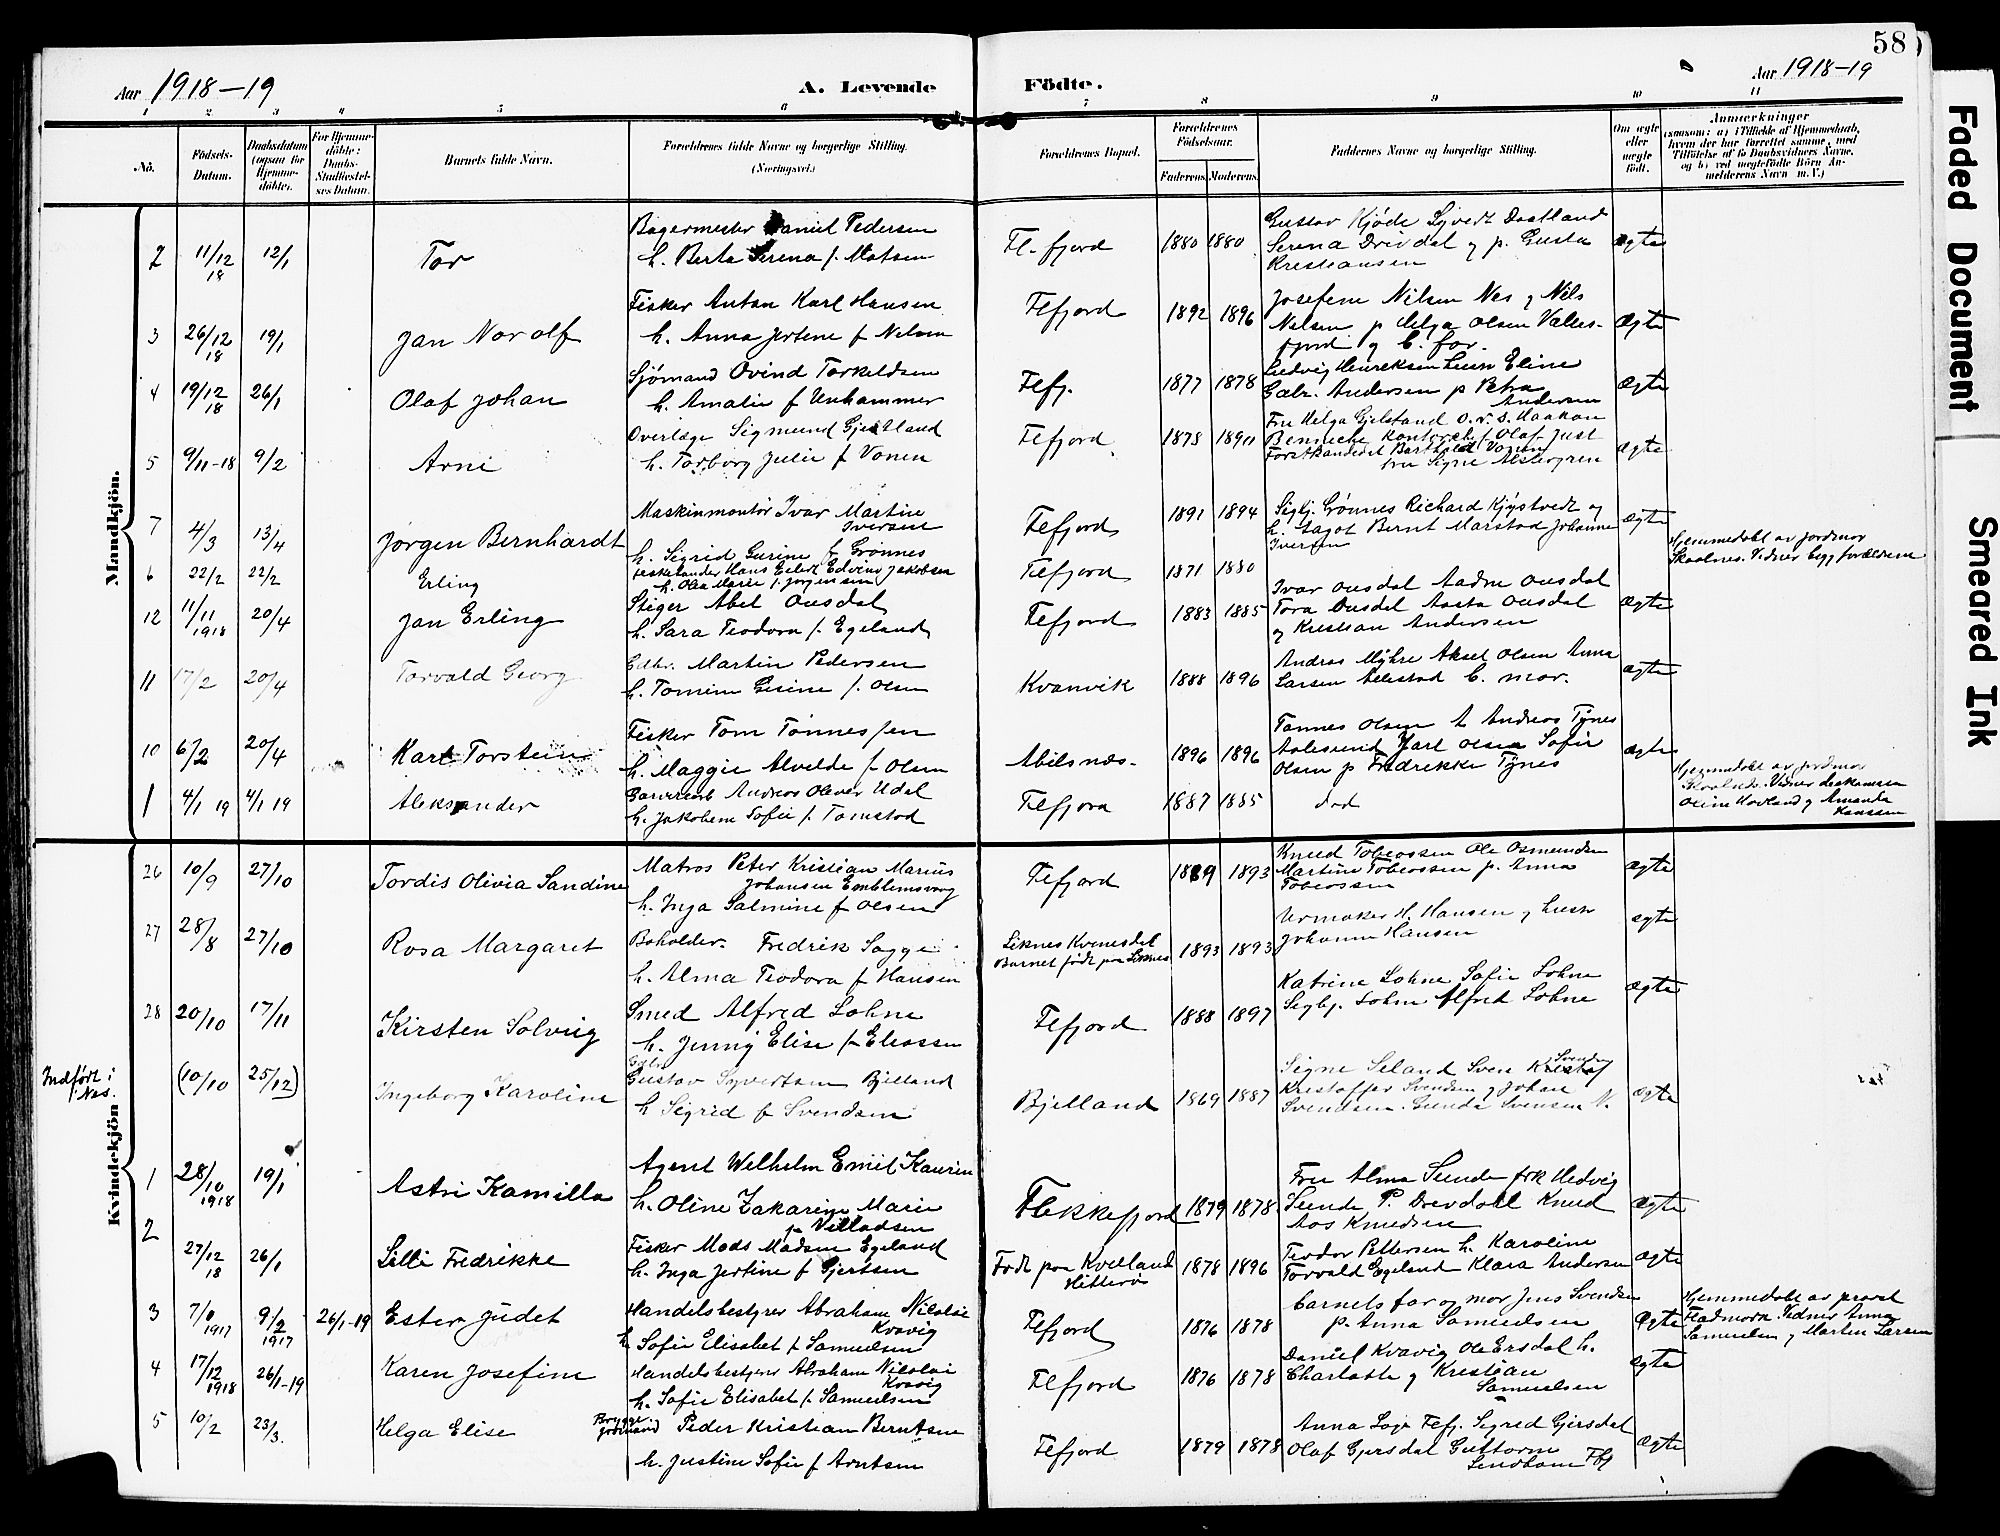 58
Aar 1918-19
A. Levende Födte.
Aar 1918-19
1 2 3 4 5 6 7 8 9 10 11
No.
Födsels-Datum.
Daabsdatum (ogsaa for Hjemmedöbte).
For Hjemmedöbte: Daabs-Stadfæstelses Datum.
Barnets fulde Navn.
Forældrenes fulde Navne og borgerlige Stilling. (Næringsvei.)
Forældrenes Bopæl.
Forældrenes Födselsaar.
Faderens. Moderens.
Faddernes Navne og borgerlige Stilling.
Om ægte eller uægte födt.
Anmærkninger
(saasom: a) i Tilfælde af Hjemmedaab, hvem der har forrettet samme, med Tilföielse af to Daabsvidners Navne. og b) ved uægtefödte Börn Anmelderens Navn m. V.)
Mandkjön.
2 11/12 18 12/1 Tor
Bagermester Daniel Pedersen
h. Berta Serena f. Matsen
Fl.fjord 1880 1880
Gustav Kjøde Syvert Daatland
Serena Drivdal og p. Gusta
Kristiansen
ægte
3 26/12 18 19/1 Jan Norolf
Fisker Anton Karl Hansen
h. Anna Jertine f Nelsen
Flfjord 1892 1896
Josefine Nilsen Nes og Nils
Nelsen p Helga Olsen
fjord og b. far.
ægte
4 19/12 18 26/1 Olaf Johan
Sjømand Ovind Torkeldsen
h. Amalie f Unhammer
Flfj. 1877 1878
Ludvig Henriksen Eline
Gabr. Andersen p Petra
Andersen
ægte
5 9/11-18 9/2 Arni
Overlæge Sigmund Gjestland
h. Torborg Julie f Vonen
Flfjord
Fru Helga Gjelstand O.r.s. Haakon
Benneche Kontorch f Olaf Just
Forstkandidat Barthold Vonen
fru Signe
ægte
7 4/3 13/4 Jørgen Bernhardt
Maskinmontør Ivar Martin
Iversen
h. Sigrid Gurine f Grønnes
Flefjord 1891 1894
Sigbj. Grønnes Richard Kjøstvedt og
h. Bernt Marstad Johanne
Iversen
ægte
6 22/2 22/2 Erling
Hans Eilert Edvino Jakobsen
h. Olea Marie f. Jørgensen
Flfjord 1871 1880
Hjemmedøbt av jordmor
Skaalnes. Vidner begge forældrene
12 11/11 1918 20/4 Jan Erling
Stiger Abel Ousdal
h. Sara Teodora f. Egeland
Flefjord 1883 1885
Ivar Ousdal Aadne Ousdal
Tora Ousdal Aasta Ousdal
og Kristian Andersen
ægte
11 17/2 20/4 Torvald Georg
Gdbr. Martin Pedersen
h. Tomine Gesine f. Olsen
Kvanvik 1888 1896
Andras Myhre Aksel Olsen Anna
Larsen Allestad b. mor.
ægte
10 6/2 20/4 Karl Torstein
Fisker Tom Tønnessen
h. Maggie Alvelde f. Olsen
Abilsnæs. 1896 1896
Tannes Olsen h Andreas Tynes
Aalesund Karl Olsen Sofie
Olsen p Fredrikke Tynes
ægte
1 4/1 19 4/1 19 Aleksander
Garverarb. Andreas Oliver Udal
h. Jakobine Sofie f. Tomstad
Flefjord 1887 1885
død
Hjemmedøbt av jordmor
Skaalnes. Vidner
Oline Hovland og Amanda
Hanssen
Kvindekjön
26 10/9 27/10 Tordis Olivia Sandine
Matros Peter Kristian Marius
Johansen Emblemsvaag
h. Inga Salmine f Olsen
Flefjord 1889 1893
Knud Tobiassen Ole Osmundsen
Martine Tobiassen p. Anna
Tobiassen
ægte
27 28/8 27/10 Rosa Margaret
Boholder Fredrik Sagge
h. Alma Teodora f Hansen
Liknes Kvinesdal
Barnet født paa Liknes 1893 1893
Urmaker H. Hansen og
Johanne Hansen
ægte
28 20/10 17/11 Kirsten Solveig
Smed Alfred Lohne
h. Jenny Elise f Eliassen
Flefjord 1888 1897
Katrine Lohne Sofie Lohne
Sigbj. Lohne Alfred Lohne
ægte
Indført i
f. Næs.
(10/10 25/12) Ingeborg Karoline
Gdbr.
Gustav Syvertsen Bjelland
h Sigrid f Svendsen
Bjelland 1869 1887
Signe Seland Sven
Kristoffer Svendsen og Johan
Svendsen. Gunda Svensen N.
ægte
1 28/10 1918 19/1 Astri Kamilla
Agent Wilhelm Emil Kaurin
h. Oline Zakarine Marie
f. Villadsen
Flekkefjord 1879 1878
Fru Alma Sunde frk Hedvig
Sunde P. Drevdahl Knud
Aas Knudsen
ægte
2 27/12 18 26/1 Lilli Fredrikke
Fisker Mads Madsen Egeland
h. Inga Jertine f Gjertsen
Født paa Kvelland
Hitterø 1878 1896
Teodor Pettersen h. Karoline
Torvald Egeland Klara Andersen
ægte
3 7/8 1917 9/2 1917 26/1-19 Ester Judet
Handelsbestyrer Abraham Nikolai
Kvavig
h Sofie Elisabet f Samuelsen
Flfjord 1876 1878
Barnets far og mor Jens Svendsen
p. Anna Samuelsen
ægte
Hjemmedøbt av provst
Fladmark. Vidner Anna
Samuelsen og Marten Larsen
4 17/12 1918 26/1-19 Karen Josefine
Handelsbestyrer Abraham Nikolai
Kvavig
h. Sofie Elisabet f. Samuelsen
Flfjord 1876 1878
Daniel Kvavig Ole Ersdal h.
Charlotte og Kristian
Samuelsen
ægte
5 10/2 23/3. Helga Elise
Brygge
formand Peder Kristian Berntsen
h. Justine Sofie f Arntsen
Flefjord 1879 1878
Anna Flefj. Sigred Gjersdal
Olaf Gjersdal Guttorm
Lindhom Flfj
ægte
Faded Document
Smeared Ink